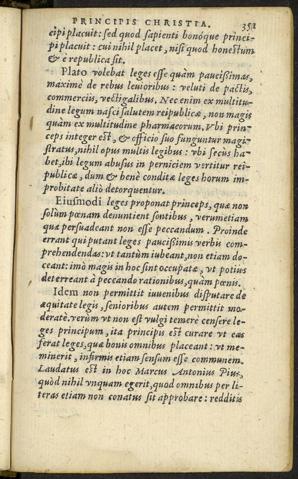 PRINCIPIS CHRISTIA. 352
cipi placuit: sed quod sapienti bonóque princi-
pi placuit: cui nihil placet, nisi quod honestum
& è republica sit.
Plato volebat leges esse quàm paucissimas,
maximè de rebus leuioribus: veluti de pactis,
commerciis, vectigalibus. Nec enim ex multitu-
dine legum nasci salutem reipublicæ, non magis
quàm ex multitudine pharmacorum. Vbi prin-
ceps integer est, & officio suo funguntur magi-
stratus, nihil opus multis legibus: vbi secùs ha-
bet, ibi legum abusus in perniciem vertitur rei-
publicæ, dum & benè conditæ leges horum im-
probitate aliò detorquentur.
Eiusmodi leges proponat princeps, quæ non
solùm pœnam denuntient sontibus, verumetiam
quæ persuadeant non esse peccandum. Proinde
errant qui putant leges paucissimis verbis com-
prehendendas: vt tantùm iubeant, non etiam do-
ceant: imò magis in hoc sint occupatæ, vt potius
deterreant à peccando rationibus, quàm pœnis.
Idem non permittit iuuenibus disputare de
æquitate legis, senioribus autem permittit mo-
deratè. verùm vt non est vulgi temerè censere le-
ges principum, ita principis est curare vt eas
ferat leges, quæ bonis omnibus placeant: vt me-
minerit, infirmis etiam sensum esse communem.
Laudatus est in hoc Marcus Antonius Pius,
quòd nihil vnquam egerit, quod omnibus per li-
teras etiam non conatus sit approbare: redditis